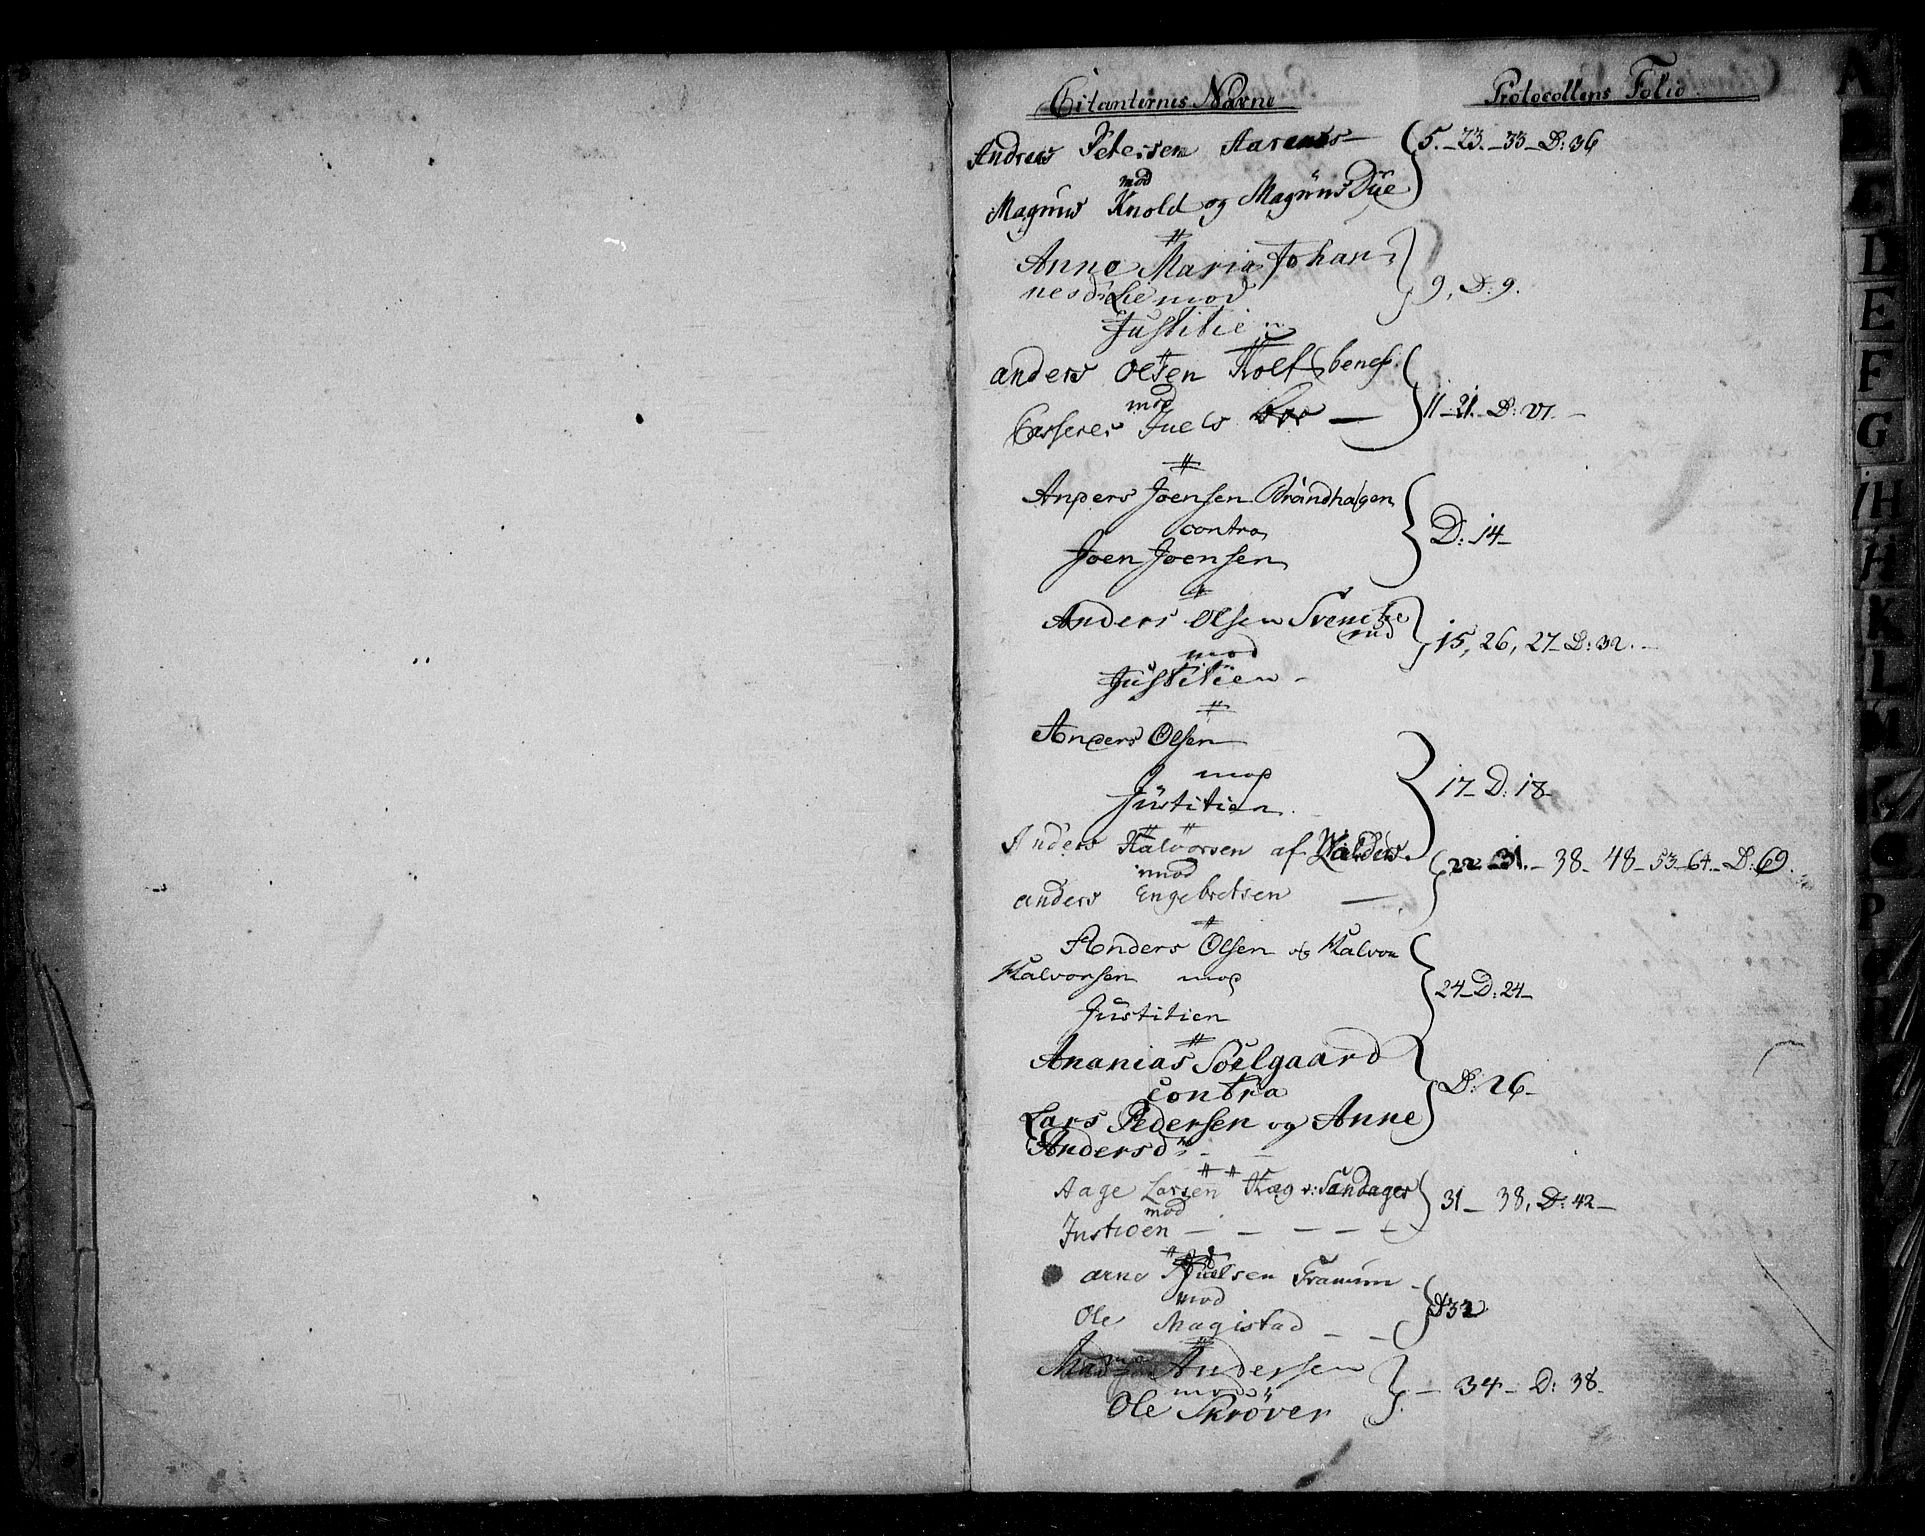 Citanternes Navne
Protocollens Folio
Andreas Petersen 5. - 23. - 33 - D: 36
mod
Magnus Knold og Magnus Due
Anne Maria Johan
nesdr Lie mod 9, D: 9.
Justitien
anders Olsen benef.
mod 11 - 21. - D: 21. -
Casserer Juels
Anders Joensen Brandhagen
contra D: 14 -
Joen Joensen
Anders Olsen Svenche
rud 15, 26, 27 - D: 32. -
mod
Justitien -
Anders Olsen
mod 17 - D: 18 -
Justitien.
Anders Halvorsen af Walders. 22 - 31. - 38 - 48 - 53 - 64. - D: 69.
mod
anders Engebretsen -
Anders Olsen og Halvor
Halvorsen mod 24 - D: 24 -
Justitien
Ananias Soelgaard
contra D: 26 -
Lars Pedersen og Anne
Andersdr -
Aage Larsen 31 - 38, D: 42 -
mod
Justicen - - - - -
arne
mod D 32
Ole Magistad - -
Andersen - 34 - D: 38 -
mod
Ole Skrøver
A
C
D
E
F
G
H
H
K
L
M
P